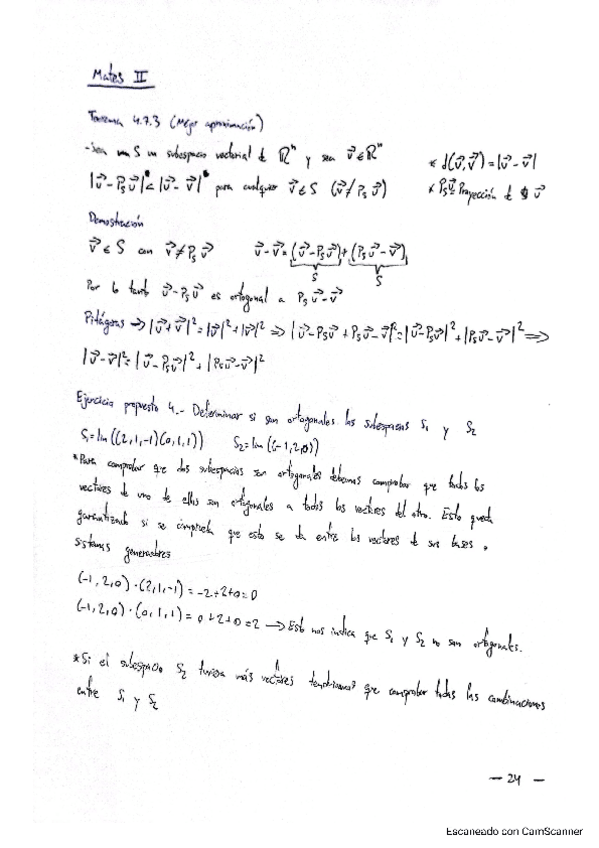 Mates II
Teorema 4.7.3 (Mejor aproximación)
-Sea S un subespacio vectorial de ℝⁿ y sea v⃗∈ℝⁿ
* d(u⃗,v⃗)=|u⃗-v⃗|
|u⃗-P_S u⃗|<|u⃗-v⃗| para cualquier v⃗∈S (v⃗≠P_S u⃗)
* P_S u⃗=Proyección de u⃗
Demostración
v⃗∈S con v⃗≠P_S u⃗ u⃗-v⃗=(u⃗-P_S u⃗)+(P_S u⃗-v⃗)
S S
Por lo tanto u⃗-P_S u⃗ es ortogonal a P_S u⃗-v⃗
Pitágoras → |u⃗+v⃗|²=|u⃗|²+|v⃗|² ⇒ |u⃗-P_S u⃗+P_S u⃗-v⃗|²=|u⃗-P_S u⃗|²+|P_S u⃗-v⃗|² ⇒
|u⃗-v⃗|²=|u⃗-P_S u⃗|²+|P_S u⃗-v⃗|²
Ejercicio propuesto 4.- Determinar si son ortogonales los subespacios S₁ y S₂
S₁=lin((2,1,-1)(0,1,1)) S₂=lin((-1,2,0))
*Para comprobar que dos subespacios son ortogonales debemos comprobar que todos los
vectores de uno de ellos son ortogonales a todos los vectores del otro. Esto queda
garantizado si se comprueba que esto se da entre los vectores de sus bases o
sistemas generadores
(-1,2,0)·(2,1,-1)=-2+2+0=0
(-1,2,0)·(0,1,1)=0+2+0=2 → Esto nos indica que S₁ y S₂ no son ortogonales.
*Si el subespacio S₂ tuviera más vectores tendríamos que comprobar todas las combinaciones
entre S₁ y S₂
- 24 -
Escaneado con CamScanner